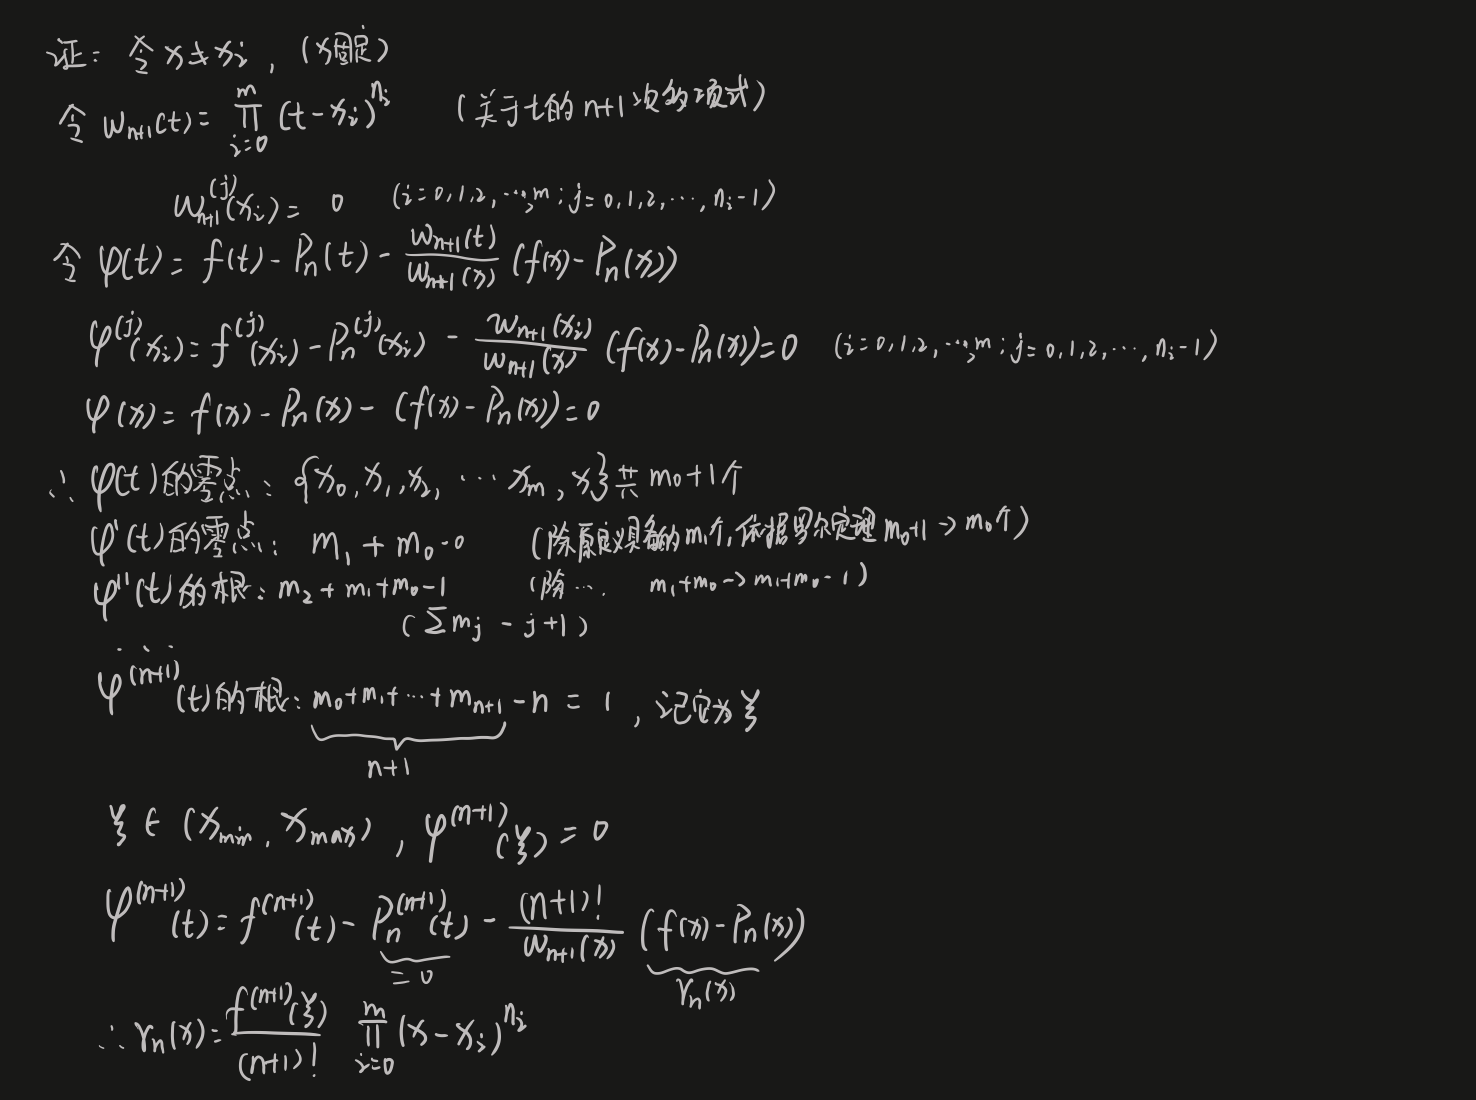 证: 令 x≠xᵢ, (x固定)
令 ωₙ₊₁(t) = ∏_{i=0}^{m} (t-xᵢ)^{nᵢ} (关于t的n+1次多项式)
ωₙ₊₁^{(j)}(xᵢ) = 0 (i=0,1,2,…,m; j=0,1,2,…,nᵢ-1)
令 φ(t) = f(t) - Pₙ(t) - \frac{ωₙ₊₁(t)}{ωₙ₊₁(x)} (f(x)-Pₙ(x))
φ^{(j)}(xᵢ) = f^{(j)}(xᵢ) - Pₙ^{(j)}(xᵢ) - \frac{ωₙ₊₁(xᵢ)}{ωₙ₊₁(x)} (f(x)-Pₙ(x)) = 0 (i=0,1,2,…,m; j=0,1,2,…,nᵢ-1)
φ(x) = f(x) - Pₙ(x) - (f(x)-Pₙ(x)) = 0
∴ φ(t)的零点: {x₀,x₁,x₂,…xₘ,x}共m₀+1个
φ'(t)的零点: m₁+m₀-0 (除原 的m₁个,依据罗尔定理m₀+1→m₀个)
φ''(t)的根: m₂+m₁+m₀-1 (除… m₁+m₀→m₁+m₀-1)
(∑mⱼ - j+1)
...
φ^{(n+1)}(t)的根: m₀+m₁+…+mₙ₊₁ - n = 1, 记它为ξ
n+1
ξ∈(x_{min}, x_{max}), φ^{(n+1)}(ξ) = 0
φ^{(n+1)}(t) = f^{(n+1)}(t) - Pₙ^{(n+1)}(t) - \frac{(n+1)!}{ωₙ₊₁(x)} (f(x)-Pₙ(x))
=0 rₙ(x)
∴ rₙ(x) = \frac{f^{(n+1)}(ξ)}{(n+1)!} ∏_{i=0}^{m} (x-xᵢ)^{nᵢ}